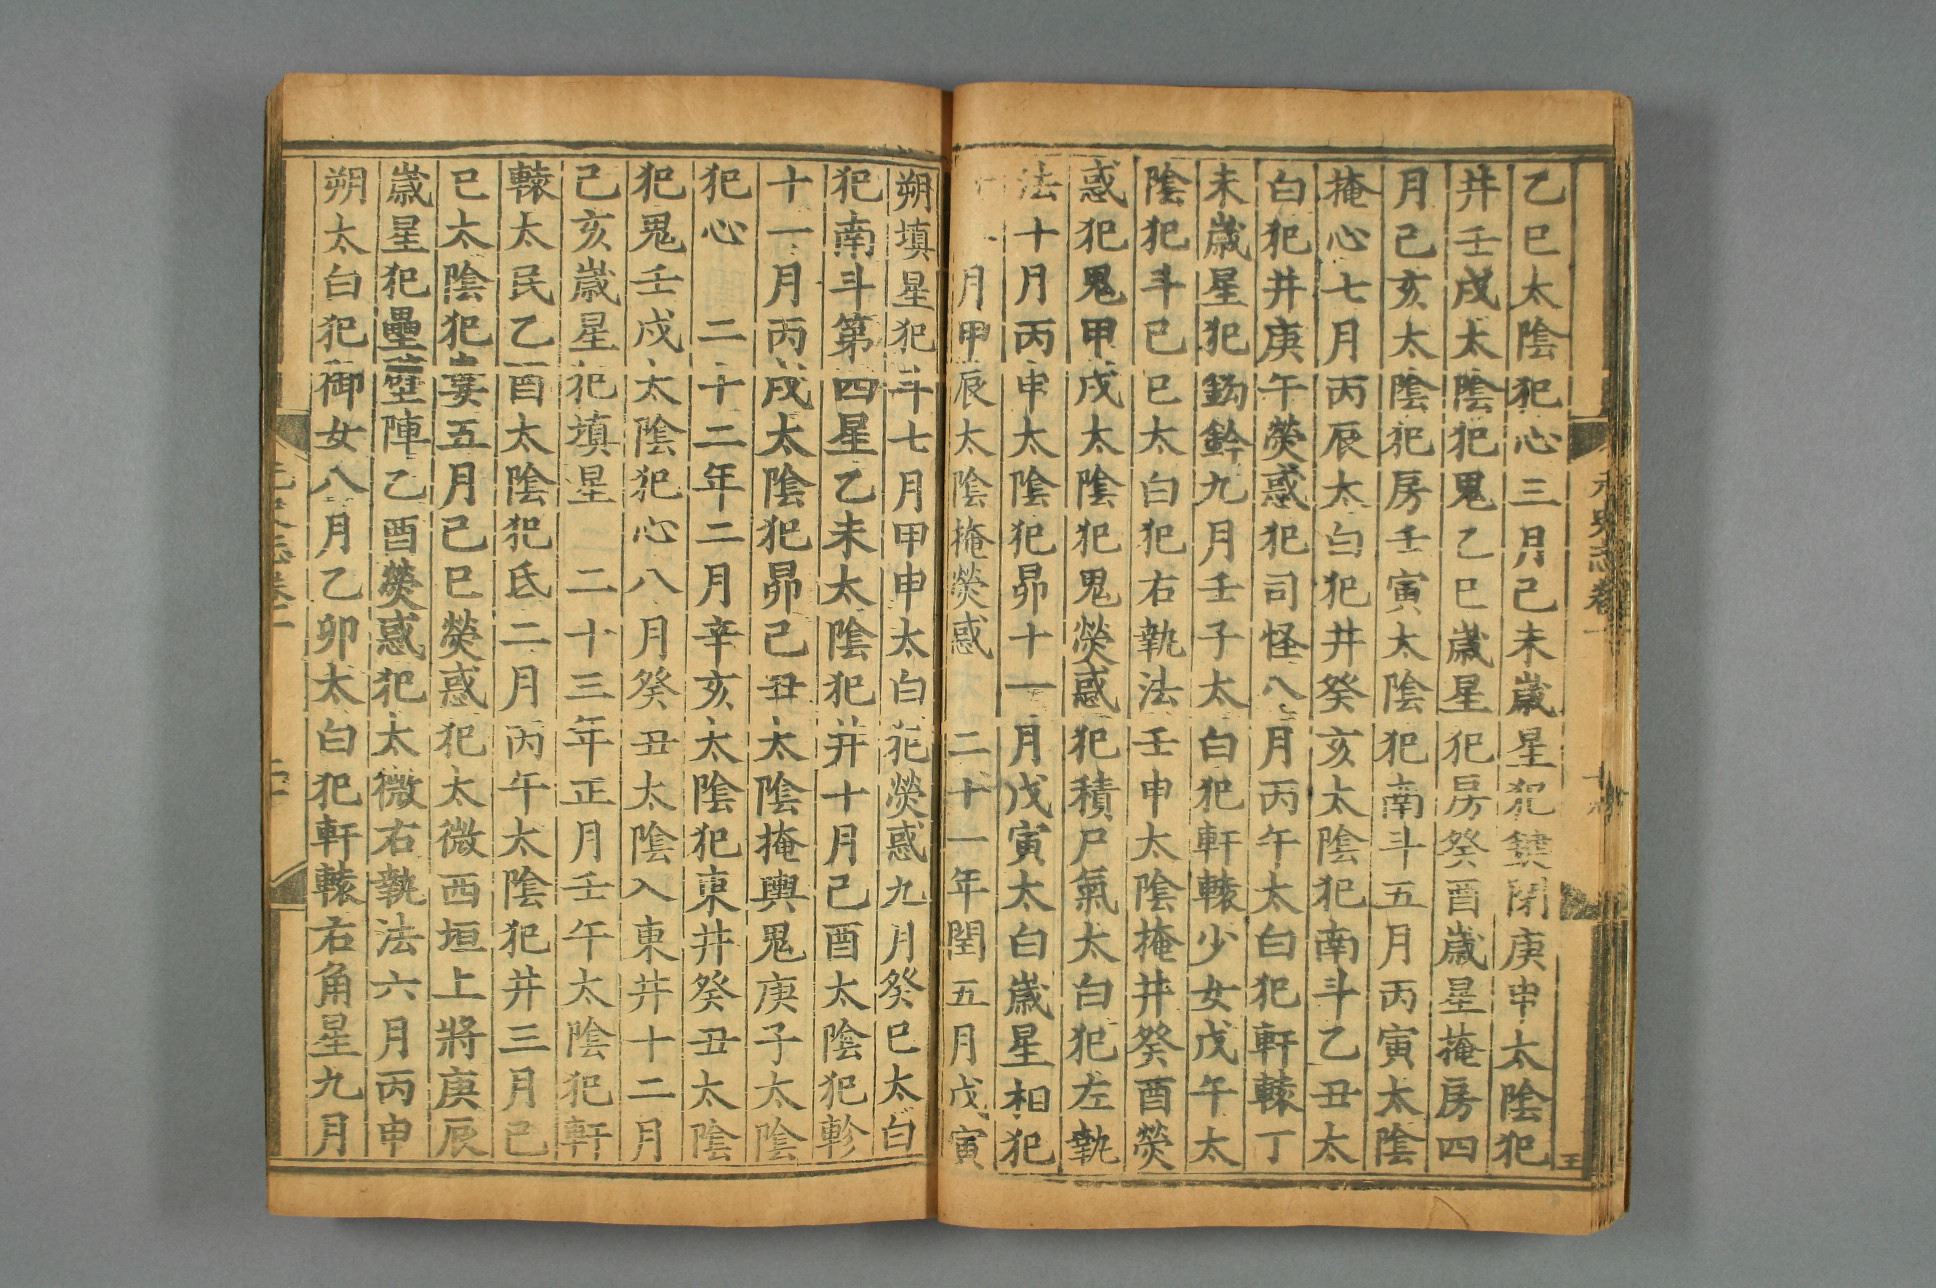 乙巳太陰犯心三月己未歲星犯鍵閉庚申太陰犯
井壬戌太陰犯鬼乙巳歲星犯房癸酉歲星掩房四
月己亥太陰犯房壬寅太陰犯南斗五月丙寅太陰
掩心七月丙辰太白犯井癸亥太陰犯南斗乙丑太
白犯井庚午熒惑犯司怪八月丙午太白犯軒轅丁
未歲星犯鈎鈐九月壬子太白犯軒轅少女戊午太
陰犯斗己巳太白犯右執法壬申太陰掩井癸酉熒
惑犯鬼甲戌太陰犯鬼熒惑犯積尸氣太白犯左執
法十月丙申太陰犯昴十一月戊寅太白歲星相犯
月甲辰太陰掩熒惑 二十一年閏五月戊寅
朔填星犯斗七月甲申太白犯熒惑九月癸巳太白
犯南斗第四星乙未太陰犯井十月己酉太陰犯軫
十一月丙戌太陰犯昴己丑太陰掩輿鬼庚子太陰
犯心 二十二年二月辛亥太陰犯東井癸丑太陰
犯鬼壬戌太陰犯心八月癸丑太陰入東井十二月
己亥歲星犯填星 二十三年正月壬午太陰犯軒
轅太民乙酉太陰犯氐二月丙午太陰犯井三月己
巳太陰犯婁五月己巳熒惑犯太微西垣上將庚辰
歲星犯壘壁陣乙酉熒惑犯太微右執法六月丙申
朔太白犯御女八月乙卯太白犯軒轅右角星九月
元史志卷一